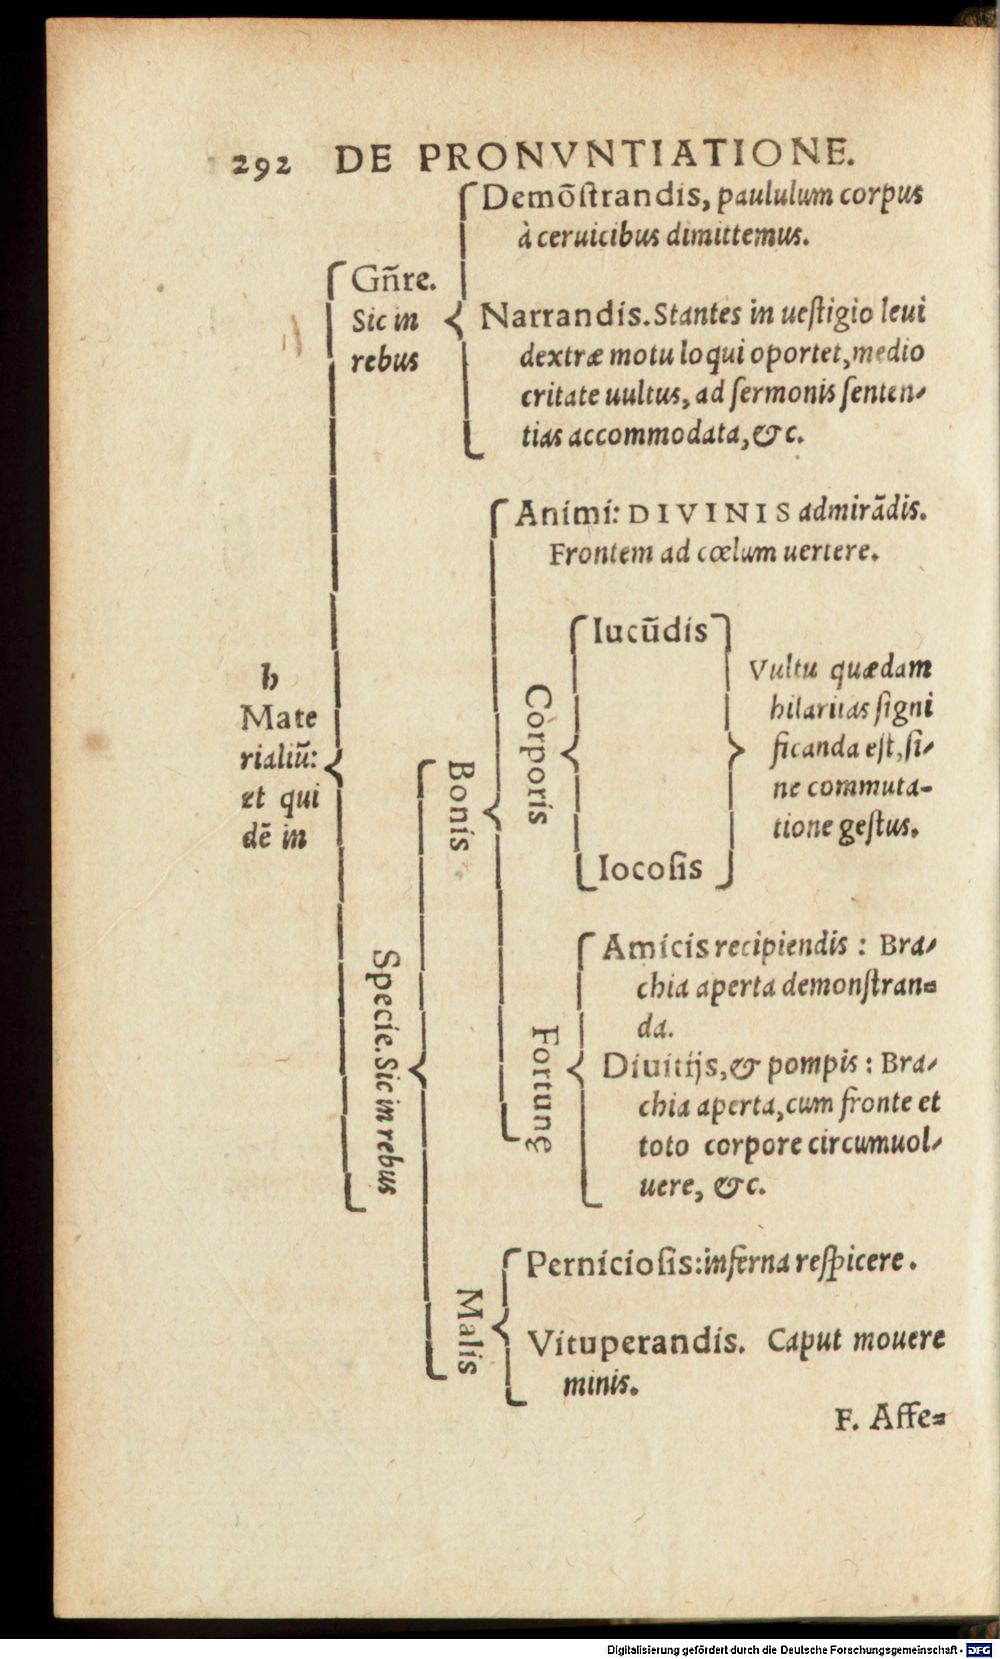 292 DE PRONVNTIATIONE.
Demõstrandis, paululum corpus
à ceruicibus dimittemus.
Gñre.
Sic in
rebus
Narrandis. Stantes in uestigio leui
dextræ motu loqui oportet, medio
critate uultus, ad sermonis senten-
tias accommodata, &c.
Animi: DIVINIS admirãdis.
Frontem ad cœlum uertere.
b
Mate
rialiũ:
et qui
dẽ in
Specie. Sic in rebus
Bonis
Corporis
Iucũdis
Iocosis
Vultu quædam
hilaritas signi
ficanda est, si-
ne commuta-
tione gestus.
Fortunę
Amicis recipiendis : Bra-
chia aperta demonstran-
da.
Diuitijs, & pompis : Bra-
chia aperta, cum fronte et
toto corpore circumuol-
uere, &c.
Malis
Perniciosis: inferna respicere.
Vituperandis. Caput mouere
minis.
F. Affe-
Digitalisierung gefördert durch die Deutsche Forschungsgemeinschaft - DFG